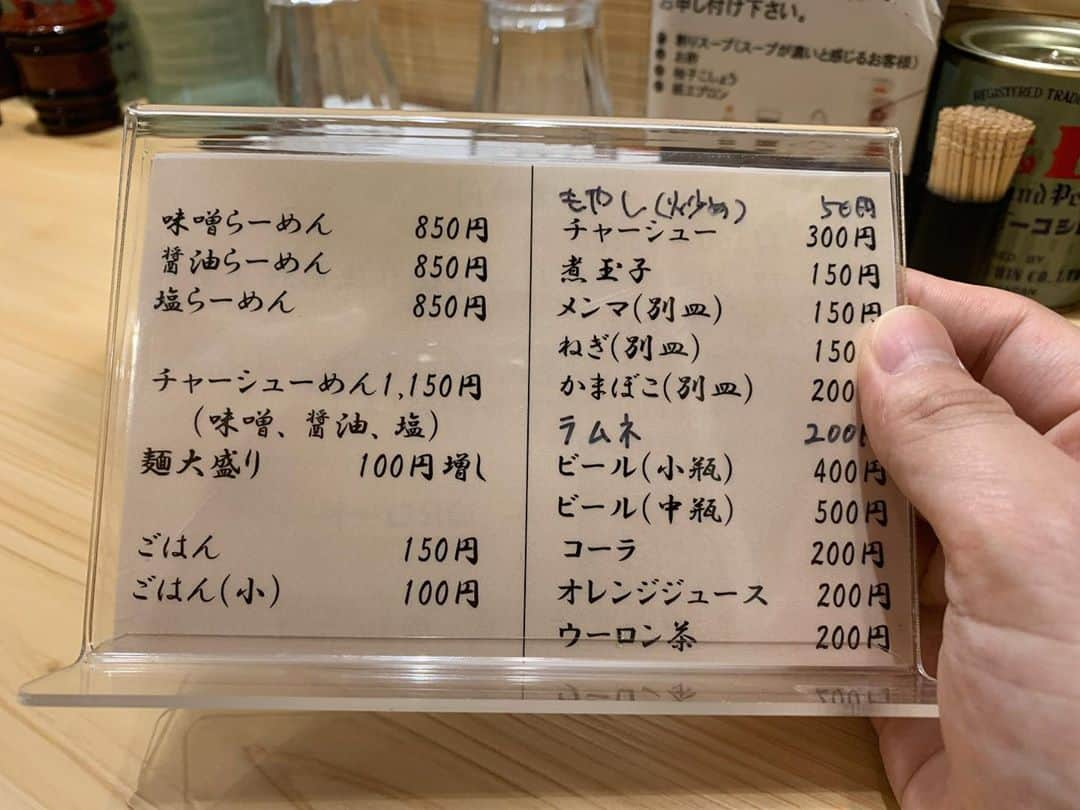 お申し付け下さい。
割りスープ(スープが濃いと感じるお客様)
お酢
柚子こしょう
紙エプロン
REGISTERED TRADE
味噌らーめん 850円
醤油らーめん 850円
塩らーめん 850円
チャーシューめん1,150円
(味噌、醤油、塩)
麺大盛り 100円増し
ごはん 150円
ごはん(小) 100円
もやし(炒め) 50円
チャーシュー 300円
煮玉子 150円
メンマ(別皿) 150円
ねぎ(別皿) 150
かまぼこ(別皿) 200
ラムネ 200円
ビール(小瓶) 400円
ビール(中瓶) 500円
コーラ 200円
オレンジジュース 200円
ウーロン茶 200円